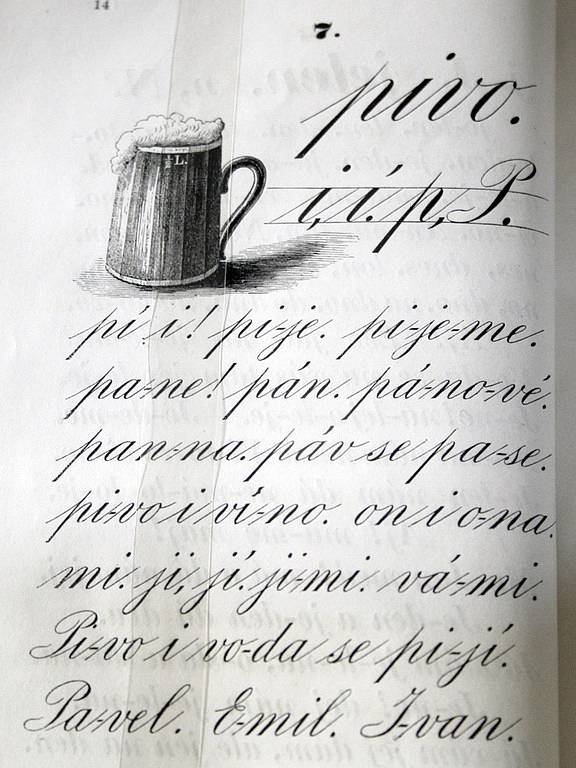 14
7.
pivo.
½L.
i, í. p, P.
pí i! pi-je. pi-je-me.
pa-ne! pán. pá-no-vé.
pan-na. páv se pa-se.
pi-vo i ví-no. on i o-na.
mi. ji, jí. ji-mi. vá-mi.
Pi-vo i vo-da se pi-jí.
Pa-vel. E-mil. I-van.